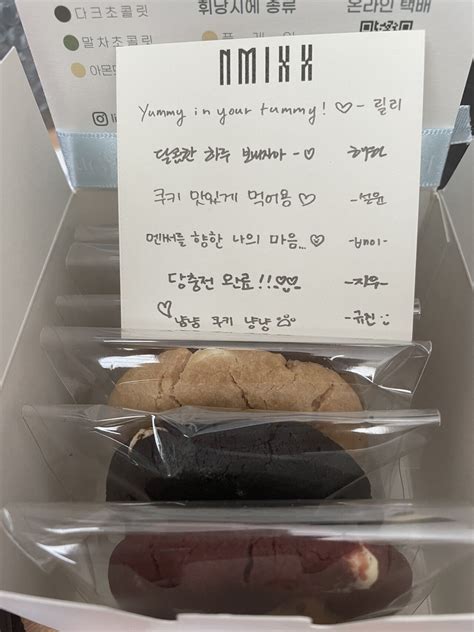 다크초콜릿
말차초콜릿
아몬드
휘낭시에 종류
플레인
온라인 택배
NMIXX
Yummy in your tummy! ♡ - 릴리
달콤한 하루 보내자아 - ♡ 해원
쿠키 맛있게 먹어용 ♡ -설윤
엔써를 향한 나의 마음... ♡ -배이-
당충전 완료!! ♡♡ -지우-
♡ 냥냥 쿠키 냥냥 -규진